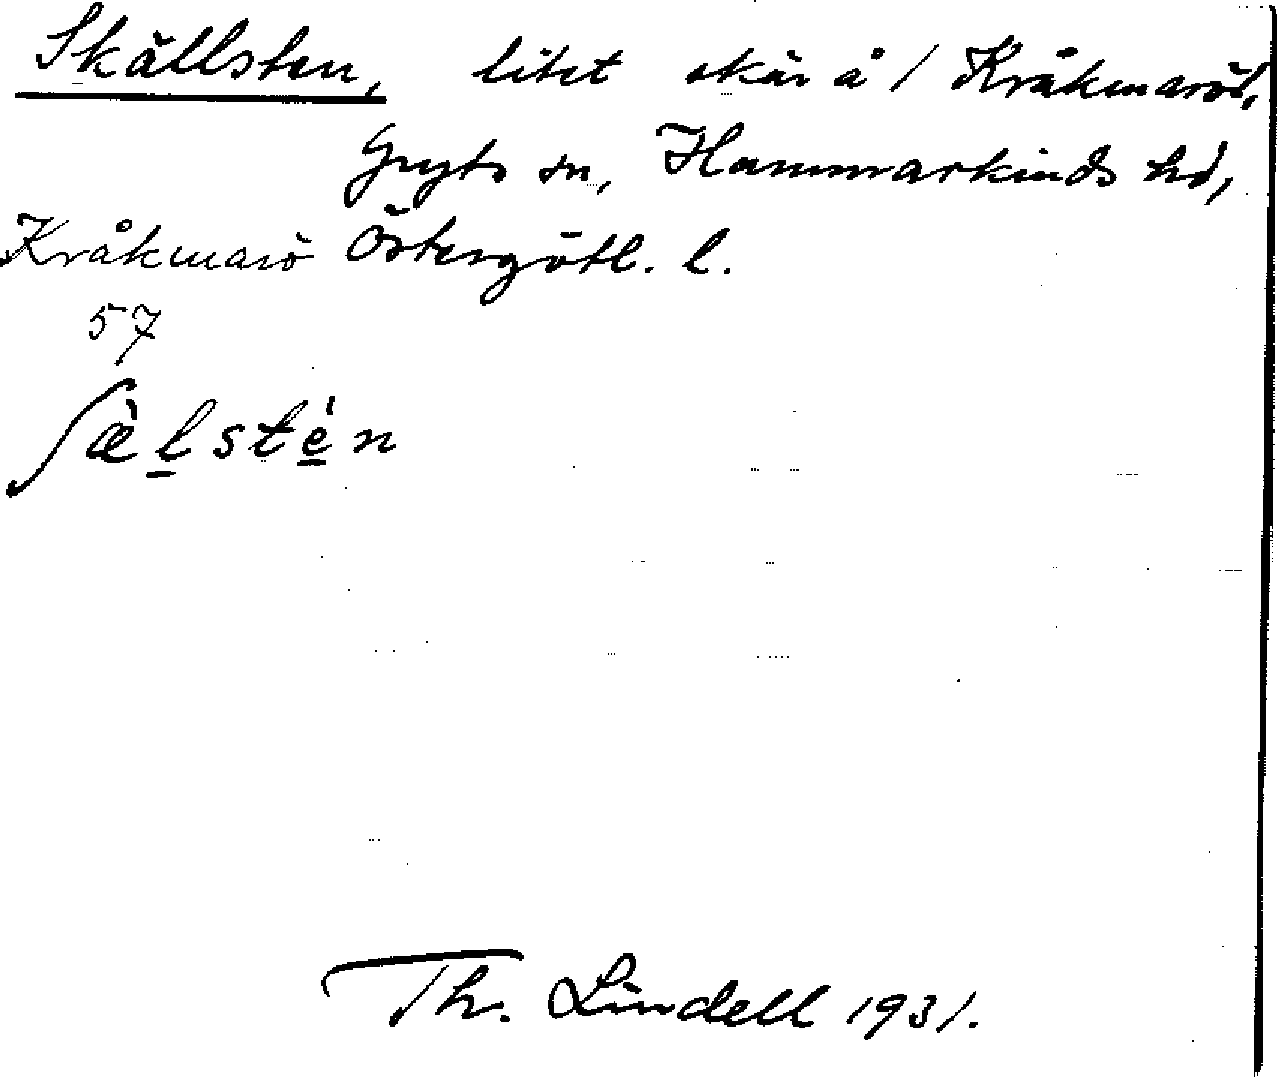 Skällsten, litet skär å / Kråkmaröl,
Gryts sn, Hammarkinds hd,
Kråkmarö Östergötl. l.
57
ʃæ̀l̲sté̲n
Th. Lindell 1931.